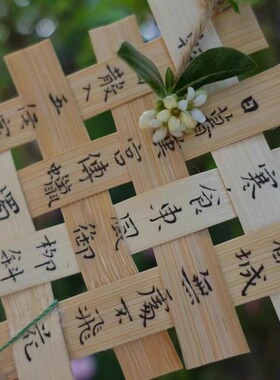 城無處不飛花
寒食東風御柳斜
日暮漢宮傳蠟燭
散入五侯家